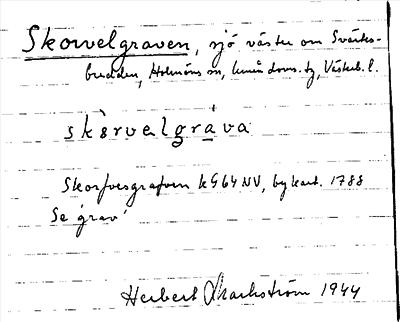 Skorvelgraven, sjö väster om Svärks-
budden, Holmöns sn, Umeå doms. tg, Västerb. l.
skörvelgrava
Skorfvesgrafven k G64 NV, bykart. 1788
Se 'grav'
Herbert Markström 1944